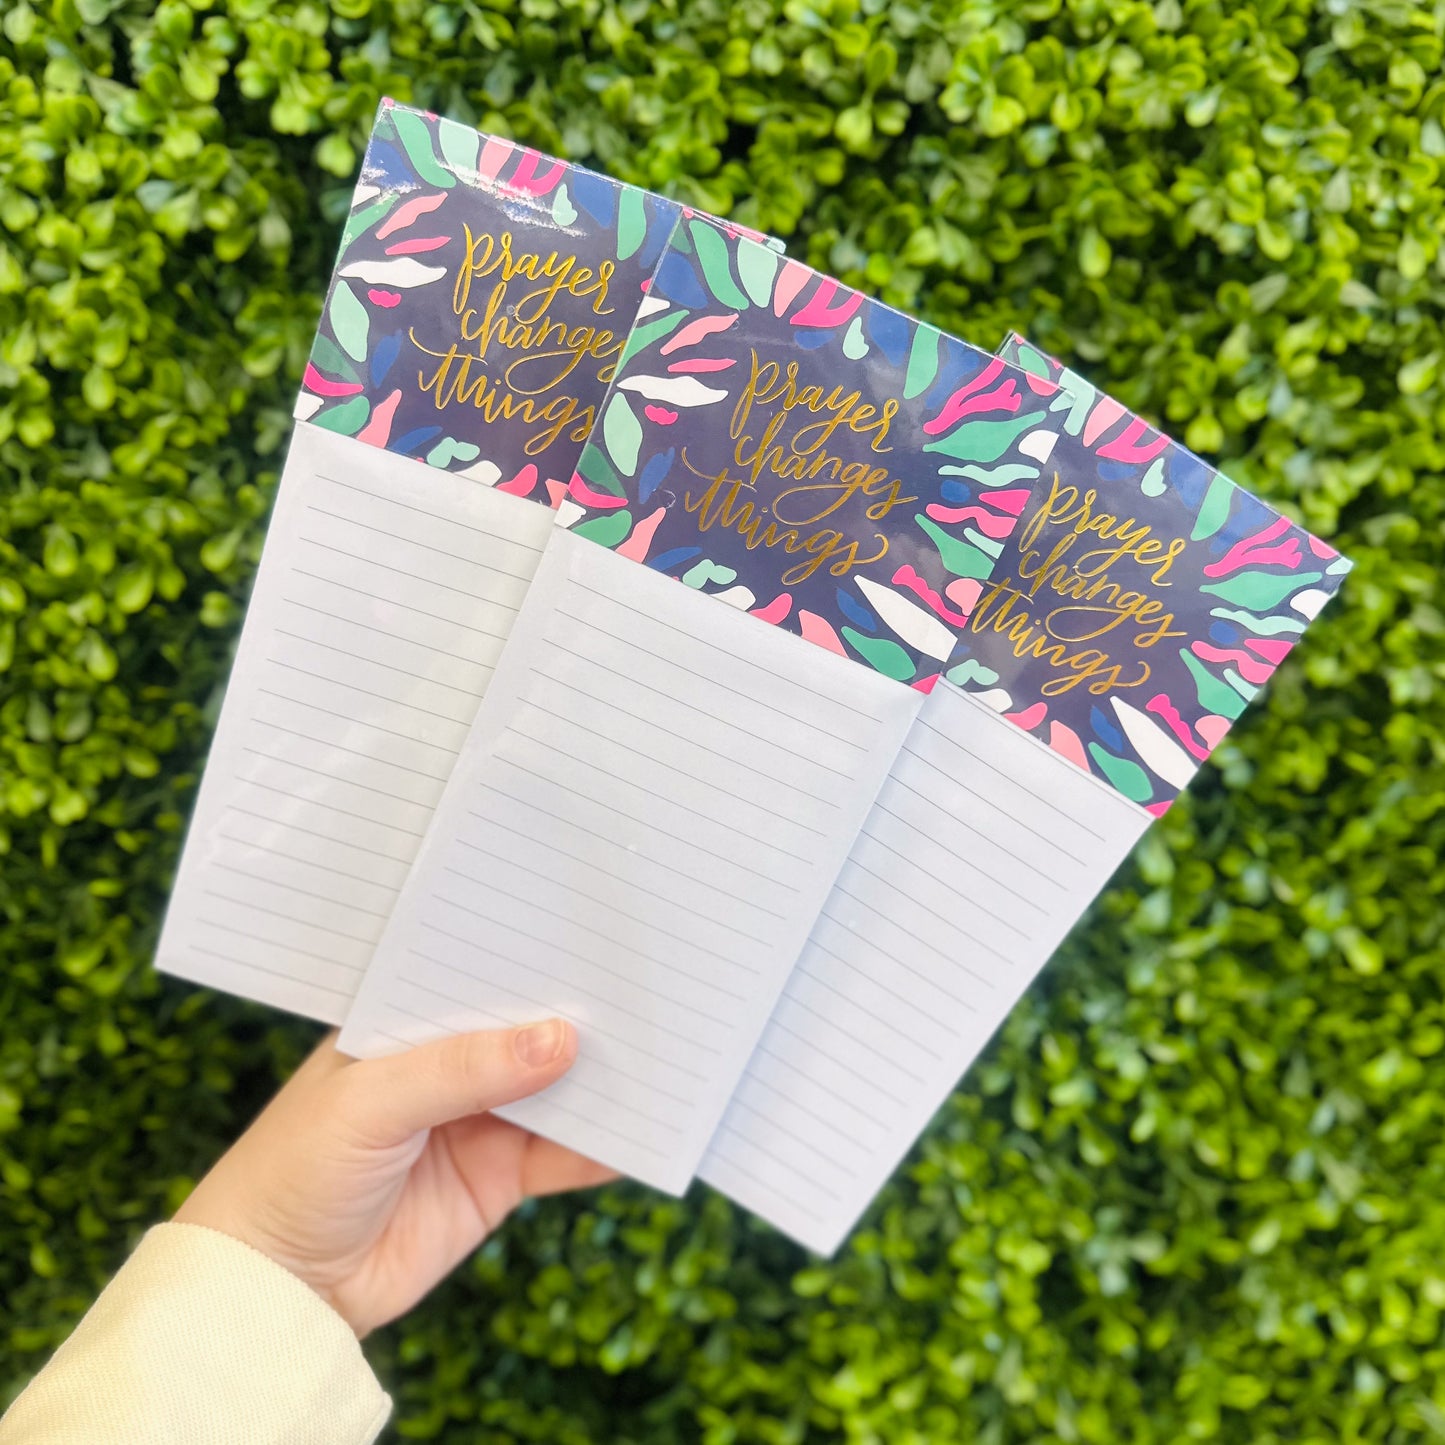 prayer
changes
things
prayer
changes
things
prayer
changes
things